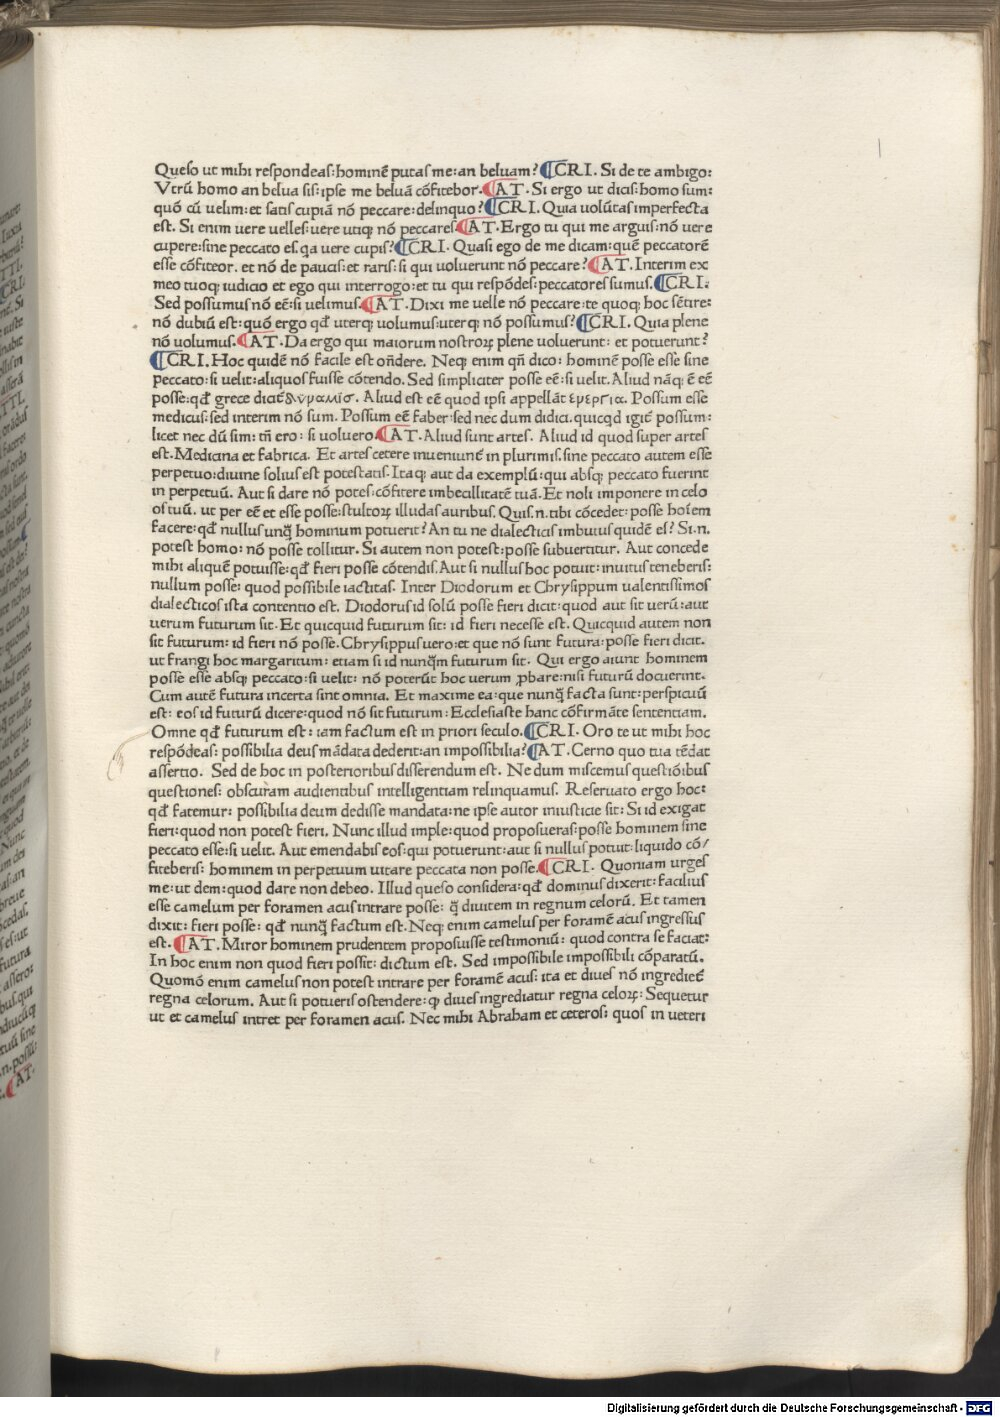 Queso ut mihi respondeas: hominẽ putas me: an beluam? ¶CRI. Si de te ambigo:
Vtrũ homo an belua sis: ipse me beluã cõfitebor. ¶AT. Si ergo ut dicis: homo sum:
quõ cũ uelim: et satis cupiã nõ peccare: delinquo? ¶CRI. Quia volũtas imperfecta
est. Si enim uere uelles: uere utiqꝫ nõ peccares ¶AT. Ergo tu qui me arguis: nõ uere
cupere: sine peccato es. qa uere cupis? ¶CRI. Quasi ego de me dicam: quẽ peccatorẽ
esse cõfiteor. et nõ de paucis: et raris: si qui uoluerunt nõ peccare? ¶AT. Interim ex
meo tuoqꝫ iudicio et ego qui interrogo: et tu qui respõdes: peccatores sumus. ¶CRI.
Sed possumus nõ eẽ: si uelimus. ¶AT. Dixi me uelle nõ peccare: te quoqꝫ hoc sẽtire:
nõ dubiũ est: quõ ergo qđ uterqꝫ uolumus: uterqꝫ nõ possumus? ¶CRI. Quia plene
nõ uolumus. ¶AT. Da ergo qui maiorum nostroꝝ plene uoluerunt: et potuerunt?
¶CRI. Hoc quidẽ nõ facile est oñdere. Neqꝫ enim qñ dico: hominẽ posse esse sine
peccato: si uelit: aliquos fuisse cõtendo. Sed simpliciter posse eẽ: si uelit. Aliud nãqꝫ ẽ eẽ
posse: qđ grece dicit̃ δυναμισ. Aliud est eẽ quod ipsi appellãt ενεργια. Possum esse
medicus: sed interim nõ sum. Possum eẽ faber: sed nec dum didici. quicqd igit̃ possum:
licet nec dũ sim: tñ ero: si uoluero. ¶AT. Aliud sunt artes. Aliud id quod super artes
est. Medicina et fabrica. Et artes cetere inueniunt̃ in plurimis. sine peccato autem esse
perpetuo: diuine solius est potestatis. Itaqꝫ aut da exemplũ: qui absqꝫ peccato fuerint
in perpetuũ. Aut si dare nõ potes: cõfitere imbecillitatẽ tuã. Et noli imponere in celo
os tuũ. ut per eẽ et esse posse: stultoꝝ illudas auribus. Quis.n.tibi cõcedet: posse hoiem
facere: qđ nullus unq̃ hominum potuerit? An tu ne dialecticis imbutus quidẽ es? Si.n.
potest homo: nõ posse tollitur. Si autem non potest: posse subuertitur. Aut concede
mihi aliquẽ potuisse: qđ fieri posse cõtendis. Aut si nullus hoc potuit: inuitus teneberis:
nullum posse: quod possibile iactitas. Inter Diodorum et Chrysippum ualentissimos
dialecticos ista contentio est. Diodorus id solũ posse fieri dicit: quod aut sit uerũ: aut
uerum futurum sit. Et quicquid futurum sit: id fieri necesse est. Quicquid autem non
sit futurum: id fieri nõ posse. Chrysippus uero: et que nõ sunt futura: posse fieri dicit.
ut frangi hoc margaritum: etiam si id nunq̃m futurum sit. Qui ergo aiunt hominem
posse esse absqꝫ peccato: si uelit: nõ poterũt hoc uerum ꝓbare: nisi futurũ docuerint.
Cum autẽ futura incerta sint omnia. Et maxime ea: que nunq̃ facta sunt: perspicuũ
est: eos id futurũ dicere: quod nõ sit futurum: Ecclesiaste hanc cõfirmãte sententiam.
Omne qđ futurum est: iam factum est in priori seculo. ¶CRI. Oro te ut mihi hoc
respõdeas: possibilia deus mãdata dederit: an impossibilia? ¶AT. Cerno quo tua tẽdat
assertio. Sed de hoc in posterioribus disserendum est. Ne dum miscemus questiõibus
questiones: obscuram audientibus intelligentiam relinquamus. Reseruato ergo hoc:
qđ fatemur: possibilia deum dedisse mandata: ne ipse autor iniusticie sit: Si id exigat
fieri: quod non potest fieri. Nunc illud imple: quod proposueras: posse hominem sine
peccato esse: si uelit. Aut emendabis eos: qui potuerunt: aut si nullus potuit: liquido cõ/
fiteberis: hominem in perpetuum uitare peccata non posse. ¶CRI. Quoniam urges
me: ut dem: quod dare non debeo. Illud queso considera: qđ dominus dixerit: facilius
esse camelum per foramen acus intrare posse: q̃ diuitem in regnum celorũ. Et tamen
dixit: fieri posse: qđ nunq̃ factum est. Neqꝫ enim camelus per foramẽ acus ingressus
est. ¶AT. Miror hominem prudentem proposuisse testimoniũ: quod contra se faciat:
In hoc enim non quod fieri possit: dictum est. Sed impossibile impossibili cõparatũ.
Quomõ enim camelus non potest intrare per foramẽ acus: ita et diues nõ ingrediet̃
regna celorum. Aut si potueris ostendere: ꝙ diues ingrediatur regna celoꝝ: Sequetur
ut et camelus intret per foramen acus. Nec mihi Abraham et ceteros: quos in ueteri
Digitalisierung gefördert durch die Deutsche Forschungsgemeinschaft - DFG